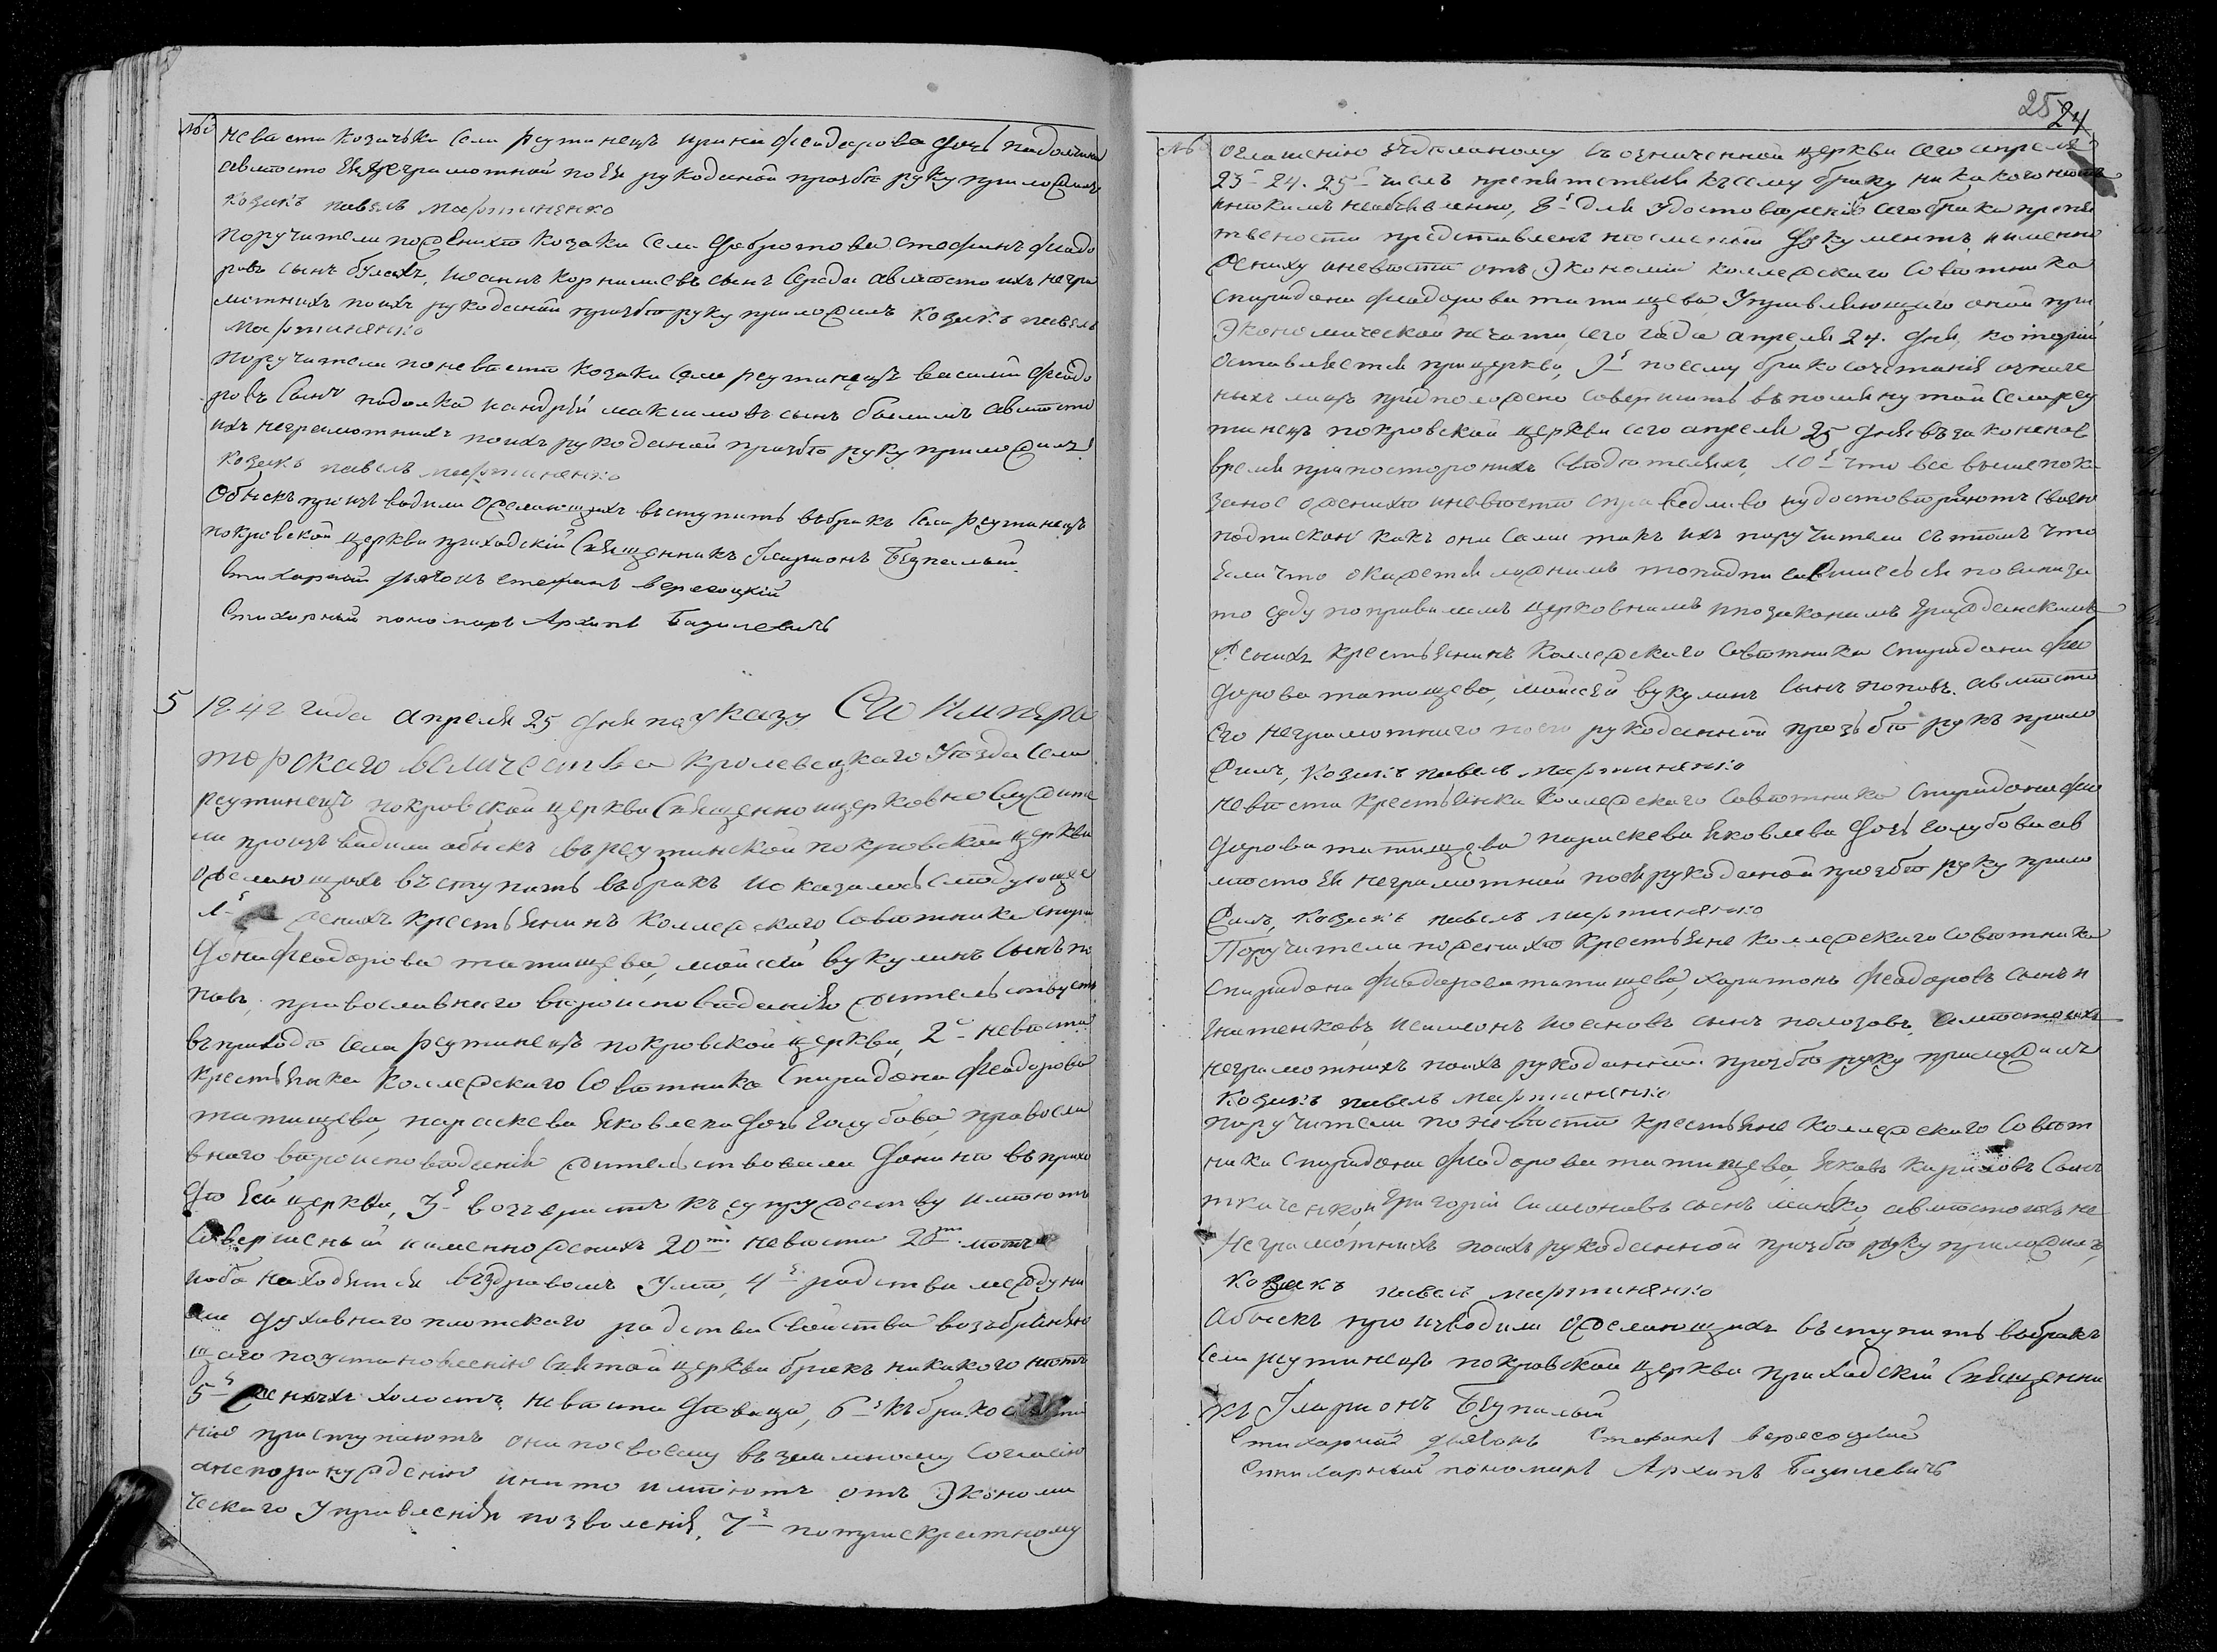 №
невести козачьки села реутинецъ ирина феодорова дочь подолчина
авместо ея неграмотной по ея рукоданой прозбе руку приложилъ
козакъ павелъ мартиненко
поручители по жениxе козаки села добротова стефанъ феодо
ровъ сынъ булахъ, иоаннъ корнилиевъ сынъ середа авместо ихъ негра
мотнихъ поихъ рукоданой прозбе руку приложилъ козакъ павелъ
мартиненко
поручители поневесте козаки села реутинецъ василий феодо
ровъ сынъ подолка иандрей максимовъ сынъ авместо
ихъ неграмотнихъ поихъ рукоданой прозбе руку приложилъ
козакъ павелъ мартиненко
Обыскъ производили ожелающихъ вступить вбракъ села реутинецъ
покровской церкви приходскій священникъ Иларіонъ Бѣупалый
стихарный дьячокъ стефанъ вересоцкій
Стихарный пономарь Архипъ Базилевичъ
5
1842 года апреля 25 дня по указу Его Импера
торскаго величества кролевецкаго уѣзда села
реутинецъ покровской церкви священно ицерковнослужите
ли производили обыскъ въреутинской покровской церкви
ожелающихъ въступить въбракъ иоказалось следующее
1е женихъ крестьянинъ коллежскаго советника спири
дона феодорова татищева, мойсей вукулинъ сынъ по
повъ, православнаго вероисповеданія жительствуетъ
въприходе села реутинецъ покровской церкви, 2е невеста
крестьянка коллежскаго советника спиридона феодорова
татищева, параскева яковлева дочь голубова, правосла
внаго вероисповеданія жительствовала донине въприхо
де сей церкви, 3е возърастъ къ супружеству имеютъ
совершеный именно женихъ 20ть невеста 20ть летъ
иоба находятся въздравомъ уме, 4е родства между ни
ми духовнаго плотскаго родства свойства возъбраняю
щаго поустановленію святой церкви бракъ никакого нетъ
5е женихъ холостъ, невеста девица, 6е къ бракосочета
нію приступаютъ они посвоему въземному согласію
анепоринужденію инато имеютъ отъ економи
ческаго управленія позволенія. 7е потрикратному
25 24
№
оглашенію зделаному въозначенной церкви сего апреля
23 24. 25 числъ препятствія къ сему браку никакого нетъ
инокимъ необявленно, 8е для удостоверенія сего брака препя
тьвености представленъ писмений документъ, именно
жениху иневесте отъ економіи коллежскаго советника
спиридона феодорова татищева управляющаго оной при
економической печати, сего года апреля 24. дня, который
оставляется прицеркве, 9е посему бракосочетанія означе
ныхъ лицъ предположено совершить въпомянутой села реу
тинецъ покровской церкви сего апреля 25 дня въ законенае
время припосторонихъ свидетеляхъ, 10е что все вышепока
заное ожениxе иневесте справедливо иудостоверяютъ своею
подпискою какъ они сами такъ ихъ поручители съ темъ что
если что окажется ложнымъ топодписавшиеся повинни за
то суду поправиламъ церковнимъ ипозаконамъ гражданскимъ
Женихъ крестьянинъ коллежскаго советника спиридона фео
дорова татищева, мойсей вукулинъ сынъ поповъ, авместо
его неграмотнаго поего рукоданной прозьбе рукъ прило
жилъ, козакъ павелъ мартиненко
невеста крестьянка коллежскаго советника спиридона фео
дорова татищева параскева яковлева дочь голубова ав
место ея неграмотной поея рукоданой прозбе руку прило
жилъ, козакъ павелъ мартиненко
Поручители пожениxе крестьяне коллежскаго советника
спиридона феодорова татищева, харитонъ феодоровъ сынъ и
гнатенковъ, исимеонъ иоановъ сынъ полозовъ, авместо ихъ
неграмотнихъ поихъ рукоданной прозбе руку приложилъ
козакъ павелъ мартиненко
поручители поневесте крестьяне коллежскаго совет
ника спиридона феодорова татищева, яковъ кириловъ сынъ
ткаченко, и григорій симеоновъ сынъ авместо ихъ не
неграмотнихъ поихъ рукоданной прозбе руку приложилъ,
козакъ павелъ мартиненко
Обыскъ производили ожелающихъ въступить въбракъ
села реутинецъ покровской церкви приходскій священни
къ Иларіонъ Бѣупалый
Стихарный дьячокъ Стефанъ вересоцкій
Стихарный пономарь Архипъ Базилевичъ